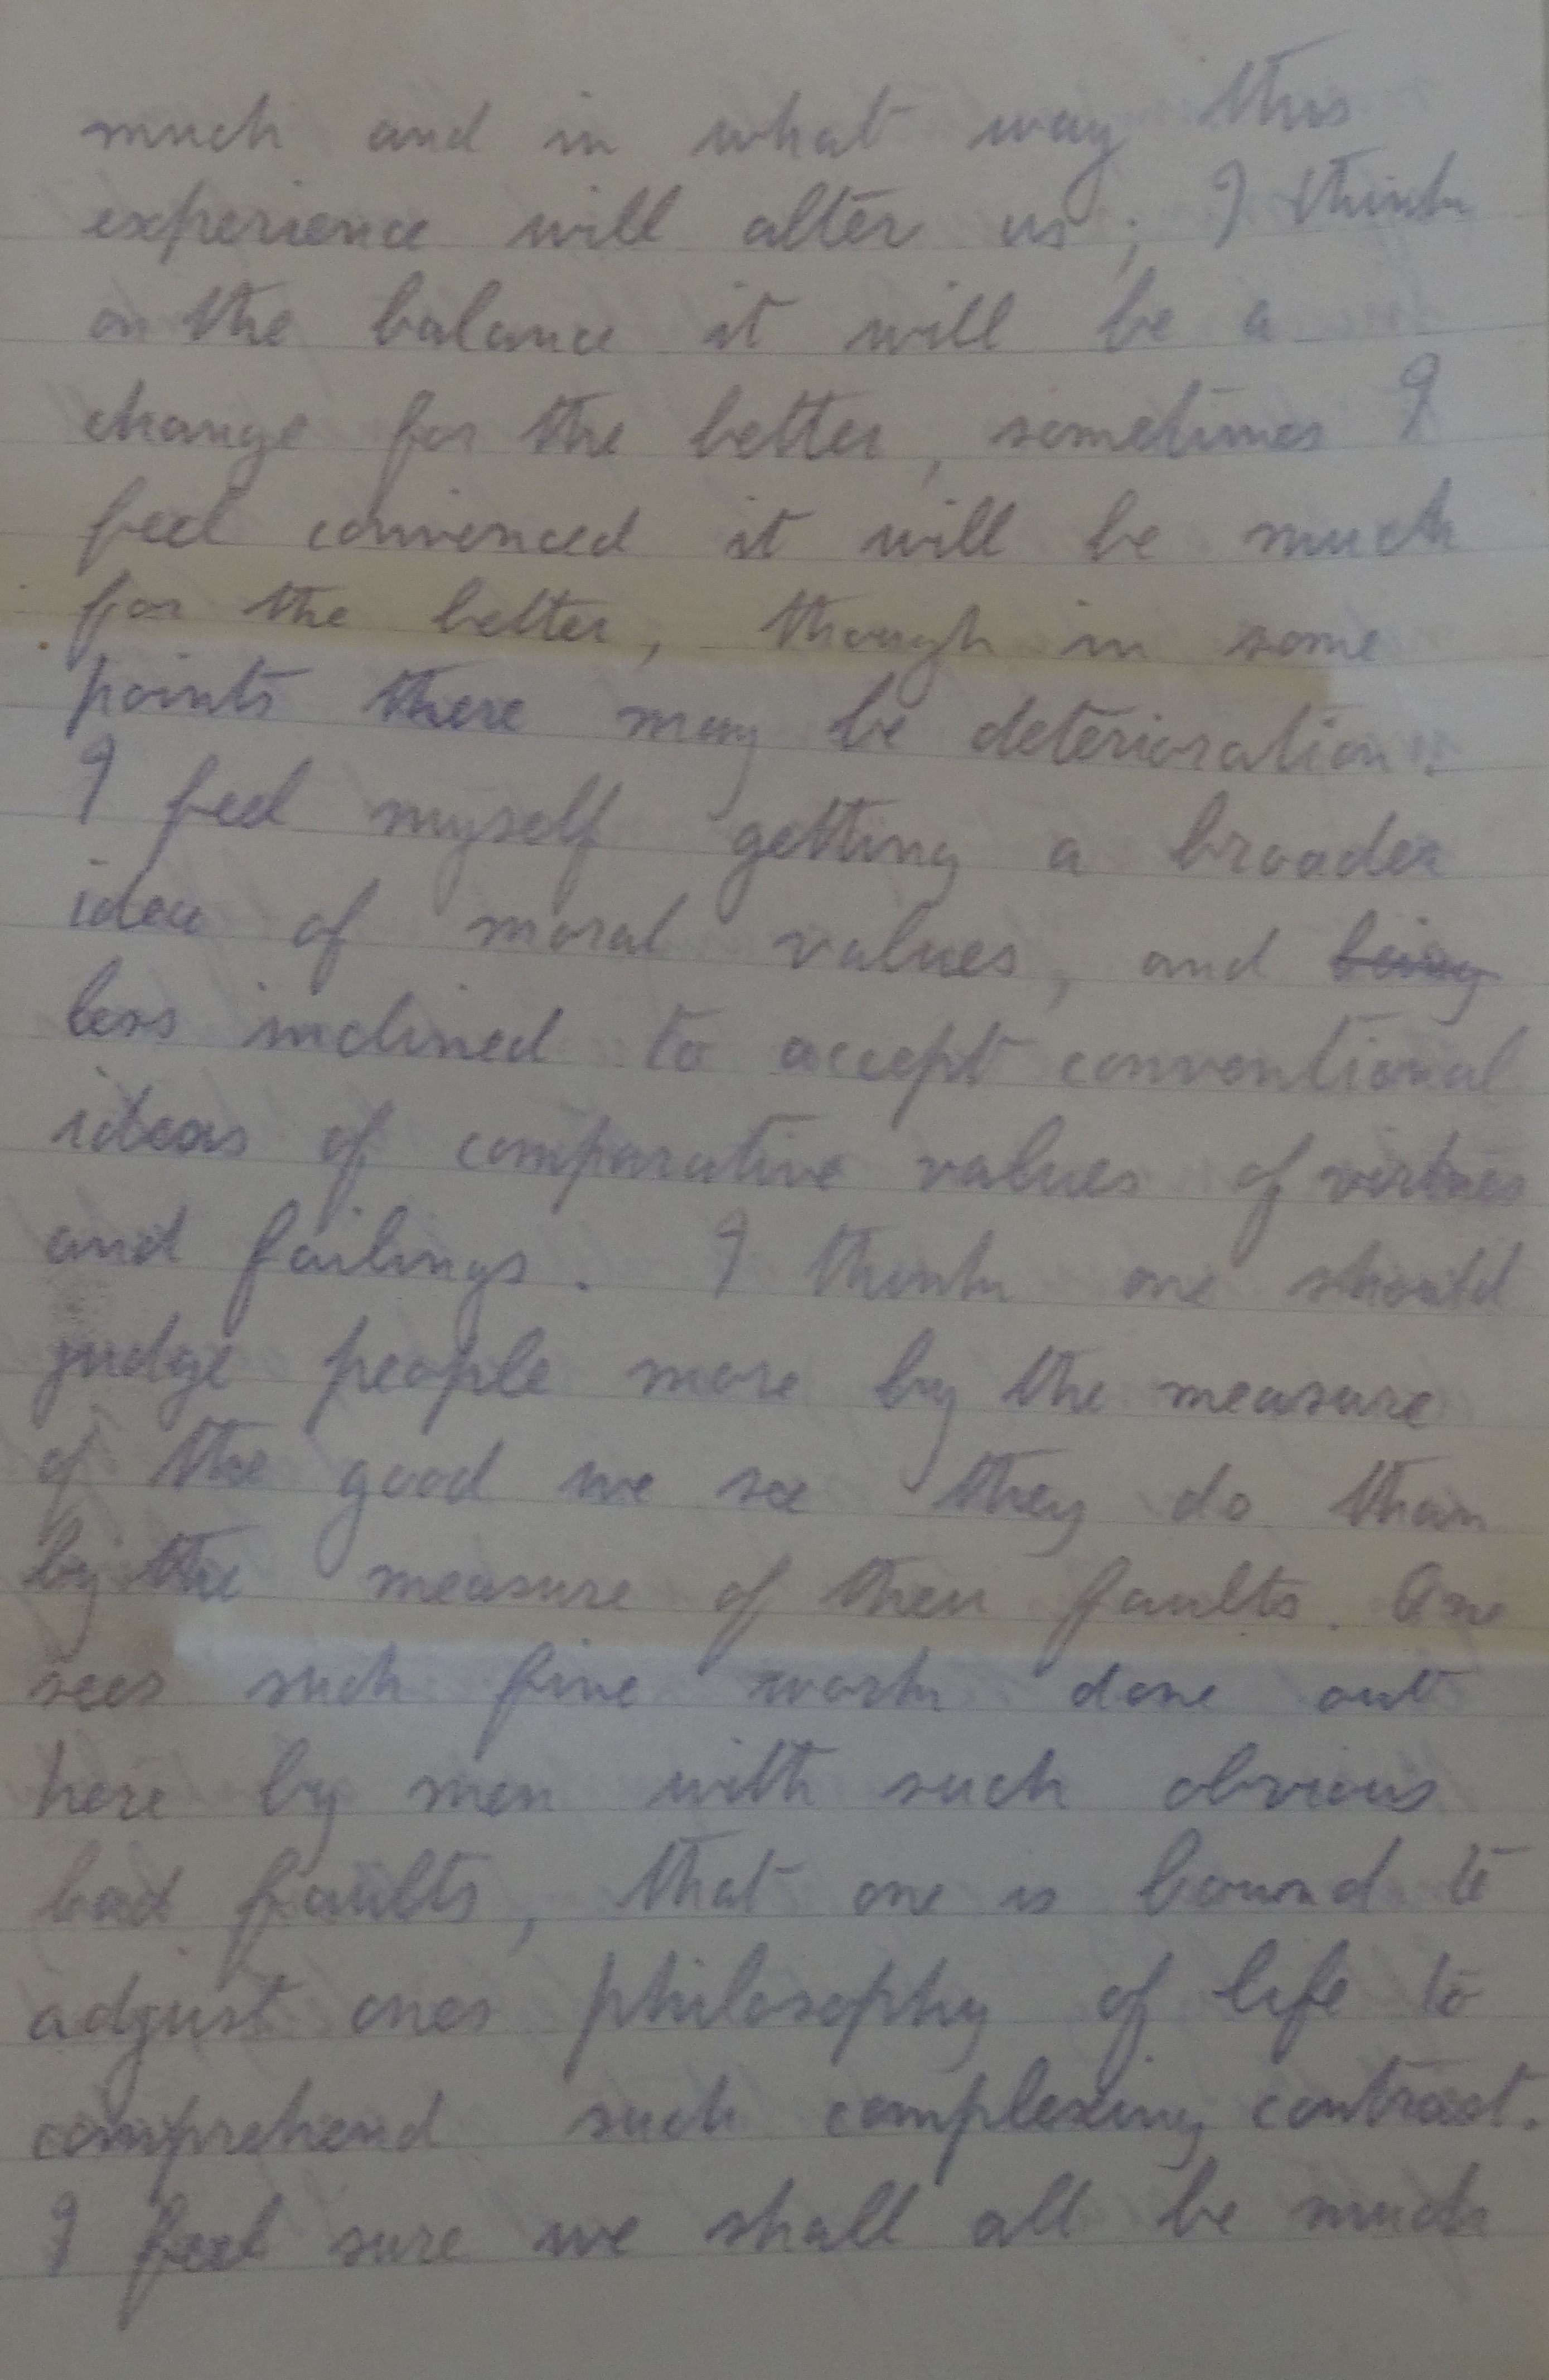 much and in what way this
experience will alter us; I think
on the balance it will be a
change for the better, sometimes I
feel convenced it will be much
for the better, though in some
points there may be deterioration.
I feel myself getting a broader
idea of moral values, and being
less inclined to accept conventional
ideas of comparative values of virtues
and failings. I think one should
judge people more by the measure
of the good we see they do than
by the measure of their faults. One
sees such fine work done out
here by men with such obvious
bad faults, that one is bound to
adjust ones philosophy of life to
comprehend such complexing contrast.
I feel sure we shall all be much